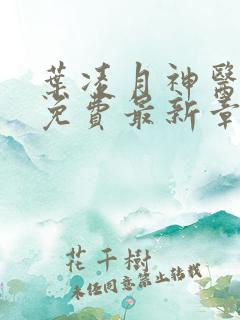 葉淩月神醫
免費最新章
花千樹
未經同意禁止轉載